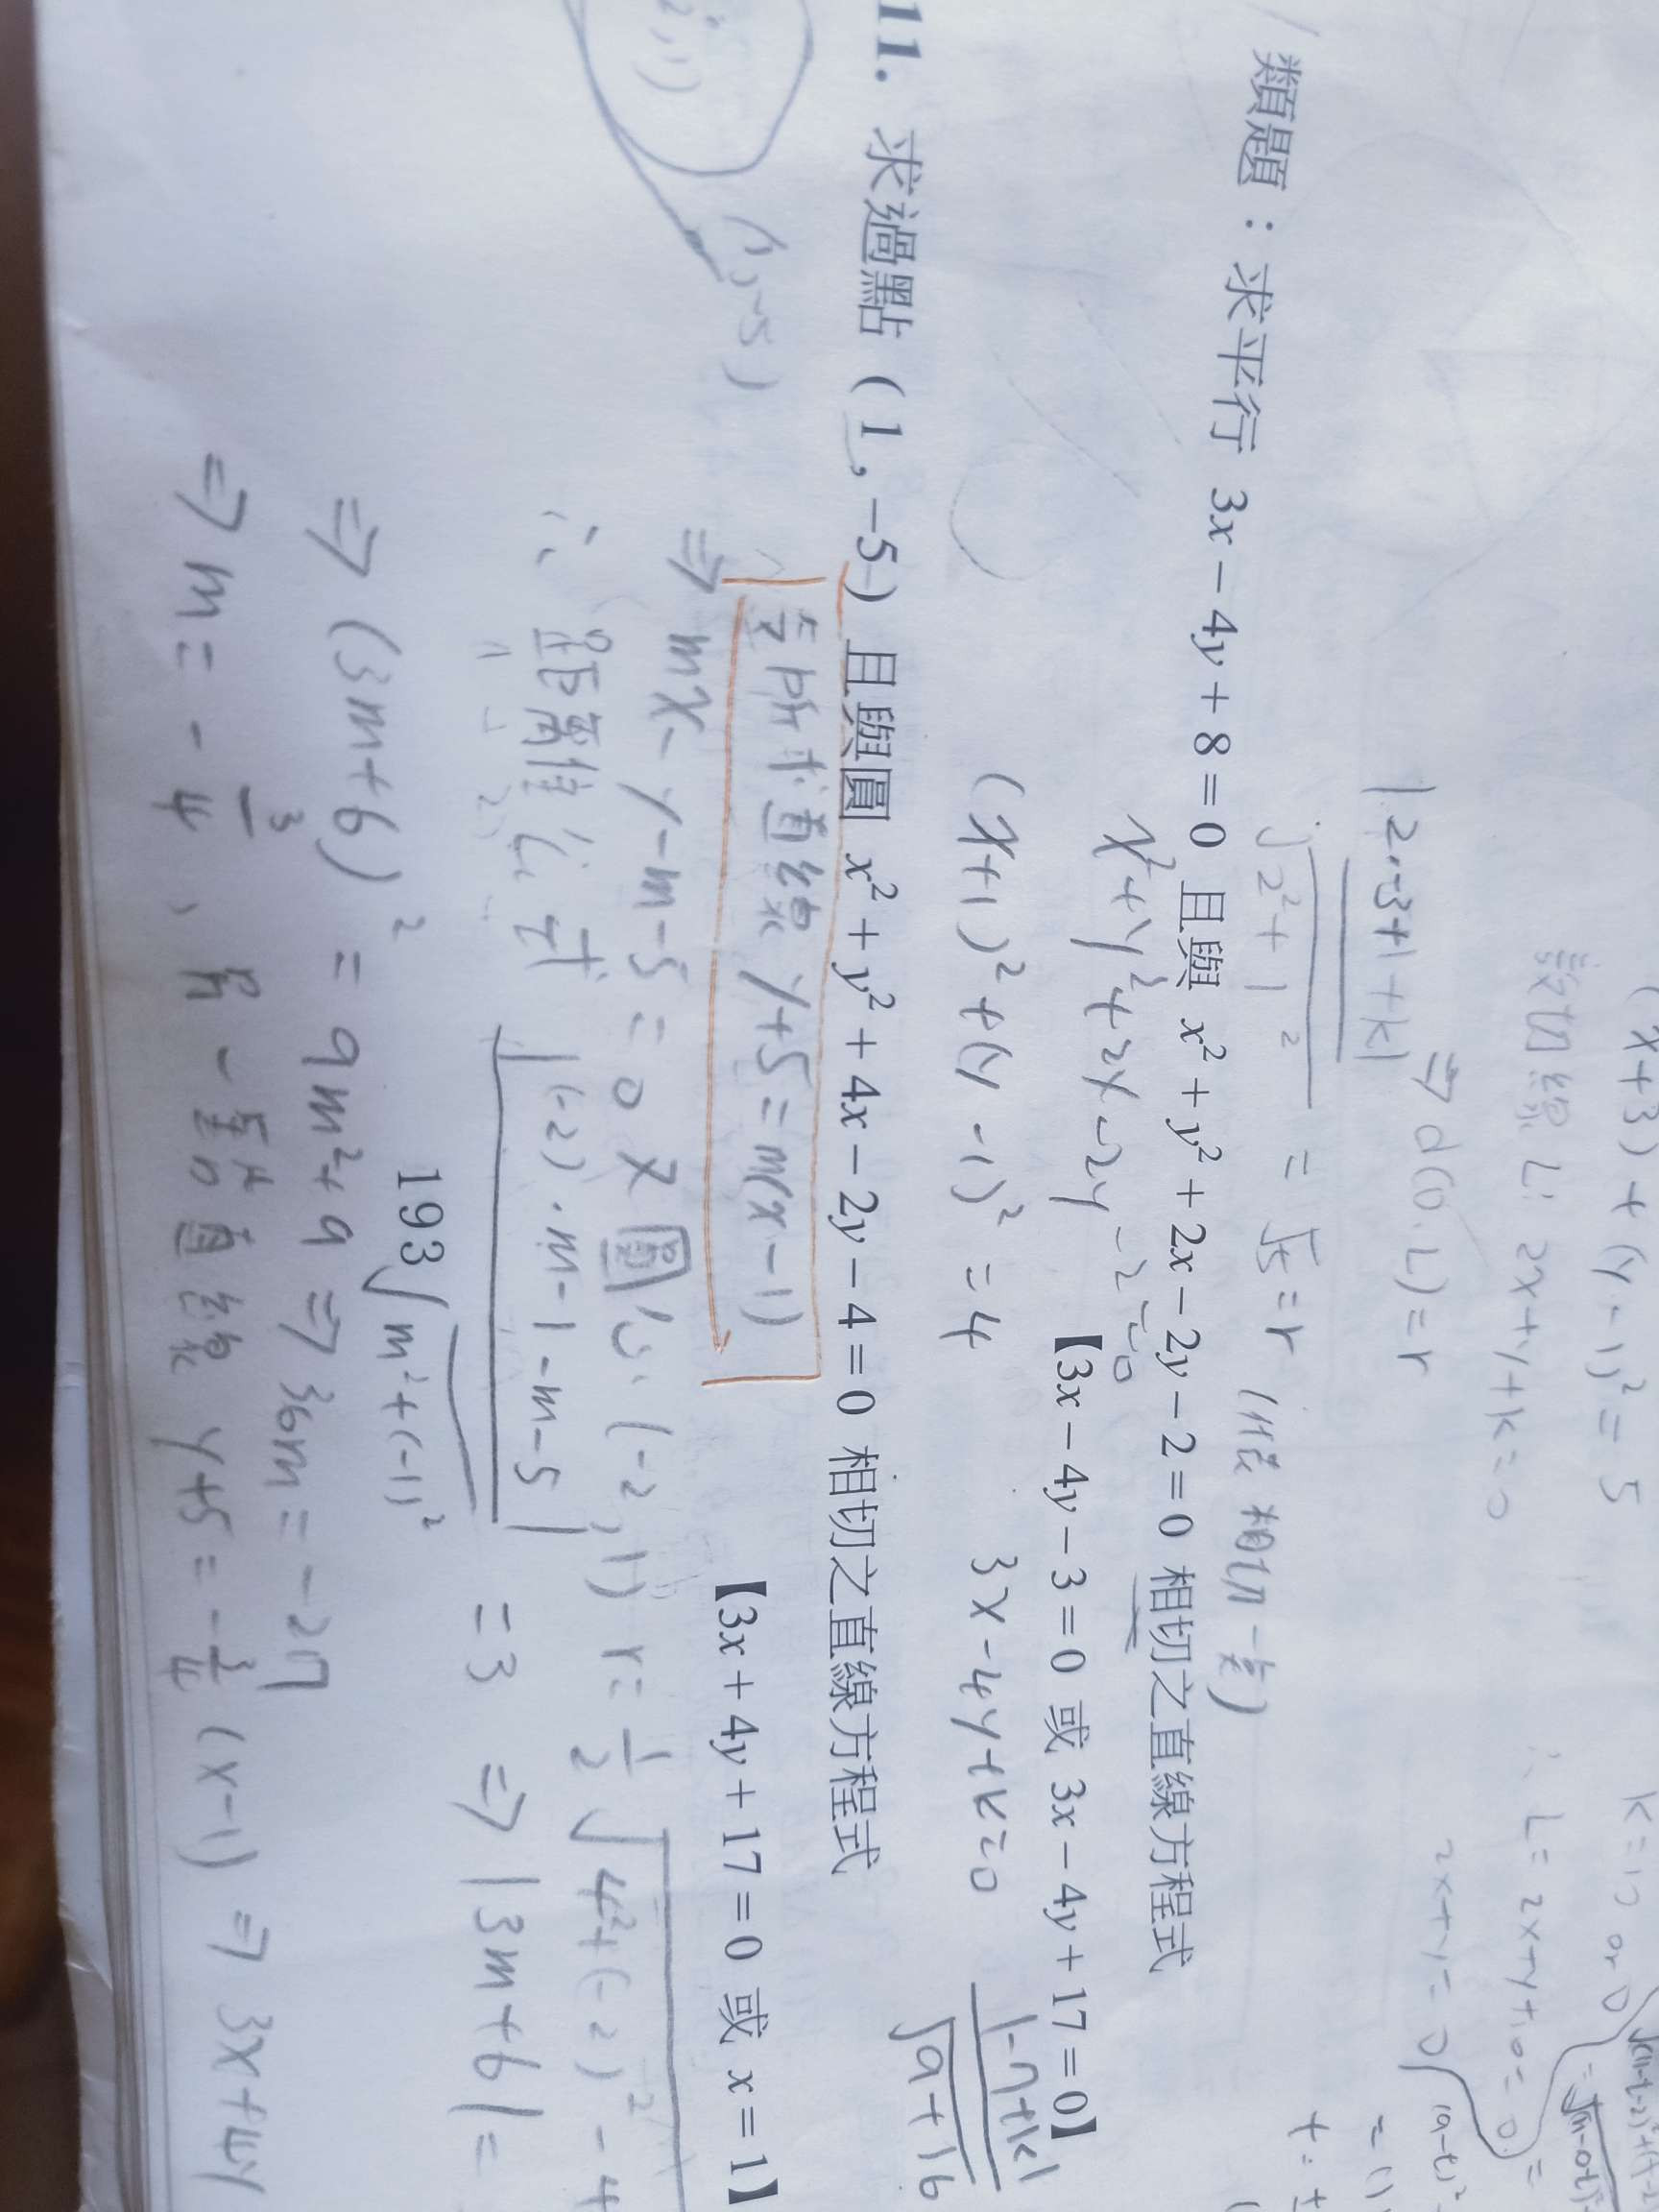 (x+3) + (y-1)² = 5
設切線 L: 2x+y+k=0
⇒ d(O.L) = r
|2·-3+1+k|
√2²+1² = √5 = r (相切一點)
k=10 or 0
∴ L= 2x+y+10=0
2x+y=0
類題：求平行 3x－4y＋8＝0 且與 x²＋y²＋2x－2y－2＝0 相切之直線方程式
x²+y²+2x-2y-2=0
【3x－4y－3＝0 或 3x－4y＋17＝0】
(x+1)²+(y-1)²=4
3x-4y+k=0
|-7+k|
√9+16
11. 求過點（1 , －5）且與圓 x²＋y²＋4x－2y－4＝0 相切之直線方程式
【3x＋4y＋17＝0 或 x＝1】
(1,-5)
令所求直線 y+5=m(x-1)
⇒ mx-y-m-5=0 又圓心(-2,1) r=½√4²+(-2)²-4
∴ 距離公式 |(-2)·m-1-m-5|
√m²+(-1)² =3 ⇒ |3m+6|=
193
⇒ (3m+6)² = 9m²+9 ⇒ 36m=-27
⇒ m=-3/4，另一垂直線 y+5=-3/4(x-1) ⇒ 3x+4y